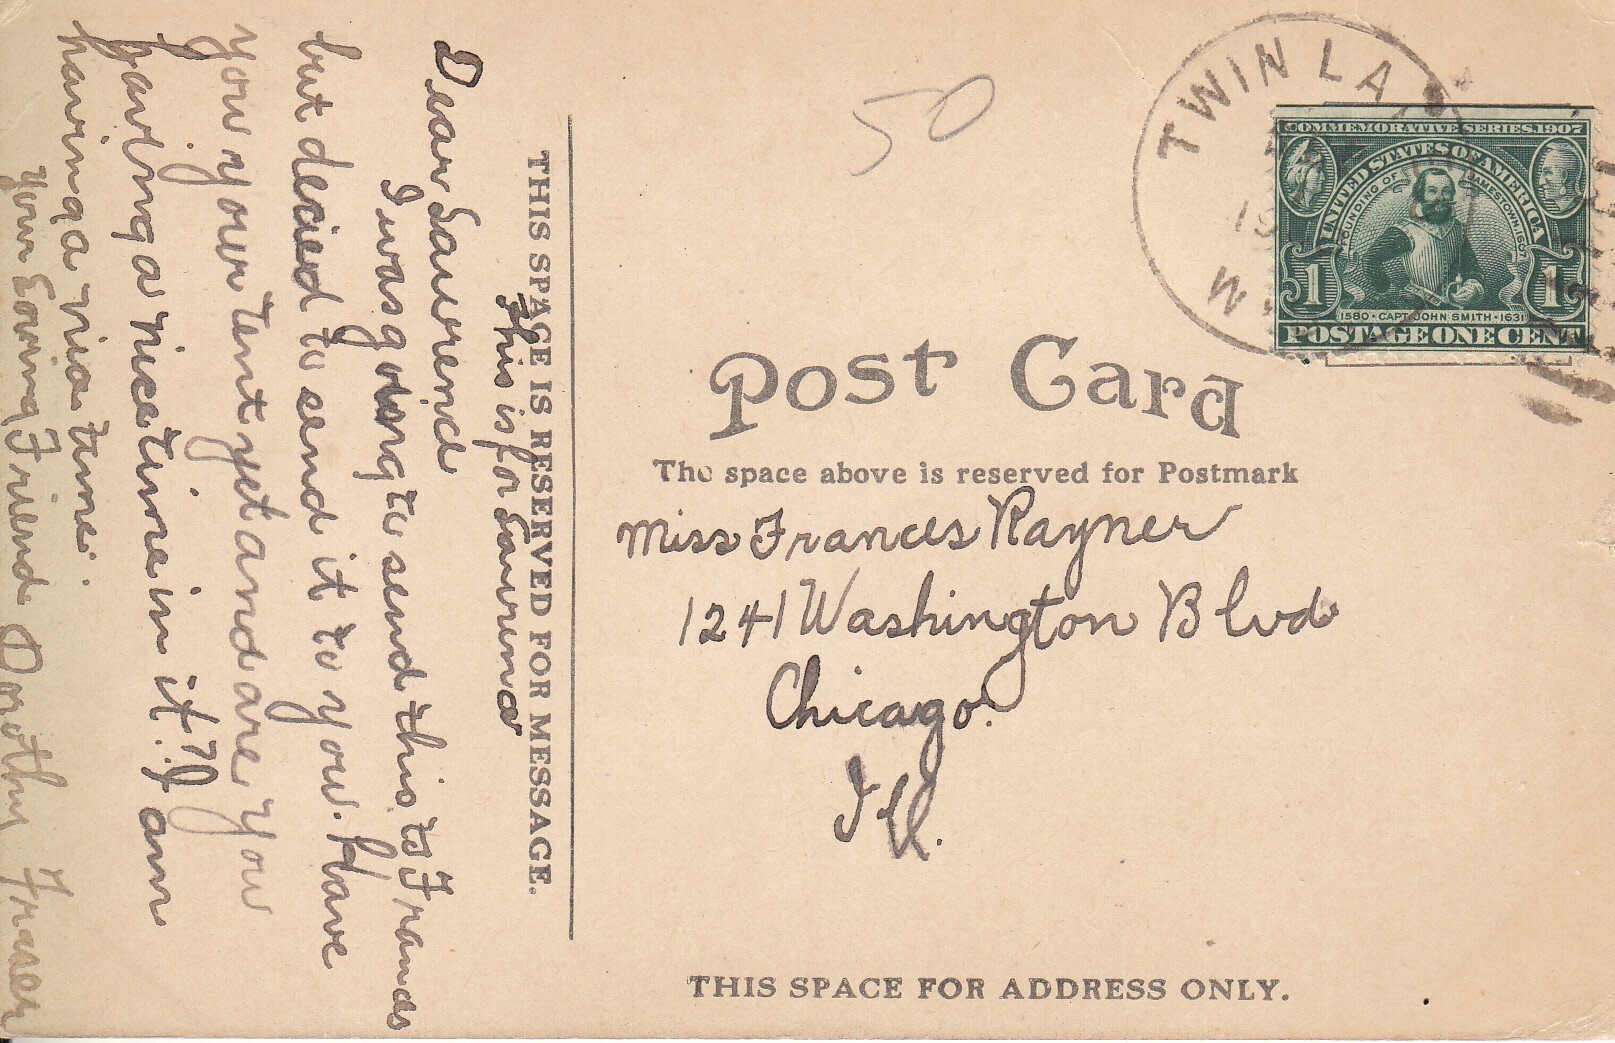 TWIN LA
W
19
COMMEMORATIVE SERIES, 1907
UNITED STATES OF AMERICA
FOUNDING OF JAMESTOWN, 1607
1 1
1580 · CAPT. JOHN SMITH · 1631
POSTAGE ONE CENT
50
Post Card
The space above is reserved for Postmark
Miss Frances Rayner
1241 Washington Blvd
Chicago.
Ill.
THIS SPACE FOR ADDRESS ONLY.
THIS SPACE IS RESERVED FOR MESSAGE.
this is for
Dear
I was going to send this to Frances
but decied to send it to you. Have
you your tent yet and are you
having a nice time in it? I am
having a nice time.
Your Loving Friend Dorothy Fraser